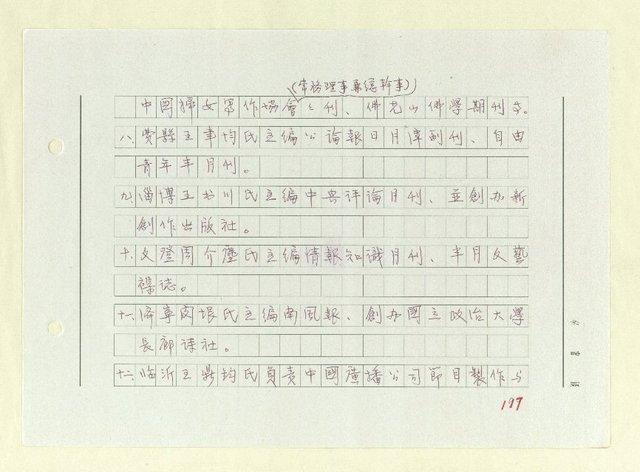 (常務理事兼總幹事)
中國婦女寫作協會會刊、佛光山佛學期刊等。
八、費縣王事均氏主編公論報日月潭副刊、自由
青年半月刊。
九、淄博王書川氏主編中央評論月刊、並創办新
創作出版社。
十、文登周介塵氏主編情報知識月刊、半月文藝
襍誌。
十一、濟寧 氏主編南風報、創办國立政治大學
長廊詩社。
十二、臨沂王鼎鈞氏負責中國廣播公司節目製作与
197